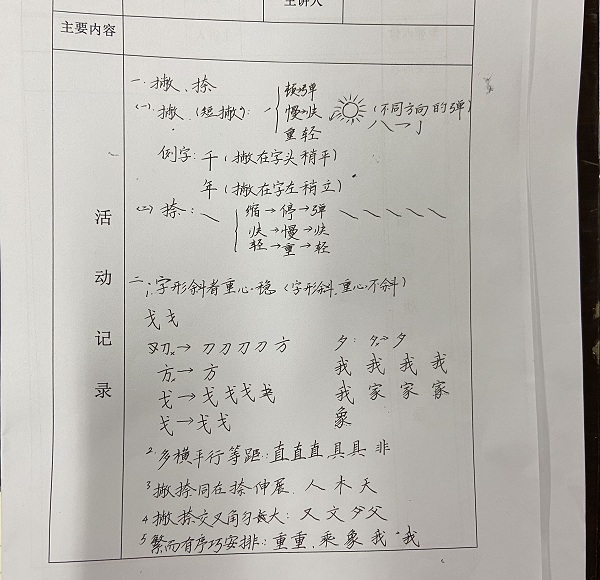 主讲人
主要内容
活动记录
一.撇、捺
(一)撇(短撇): 顿→弹
慢→快
重 轻
(不同方向的弹)
例字: 千(撇在字头稍平)
年(撇在字左稍立)
(二)捺: 缩→停→弹
快→慢→快
轻→重→轻
二: 1.字形斜者重心稳(字形斜,重心不斜)
戈戈
刃→刀刀刀刀方
方→方
戈→戈戈戈
戈→戈戈
夕: 夕→夕
我 我 我 我
我 家 家 家
象
2.多横平行等距: 直直直具具 非
3 撇捺同在捺伸展. 人 木 天
4 撇捺交叉角匀大: 又 文 父
5 繁而有序巧安排: 重重, 乘 象 我 我